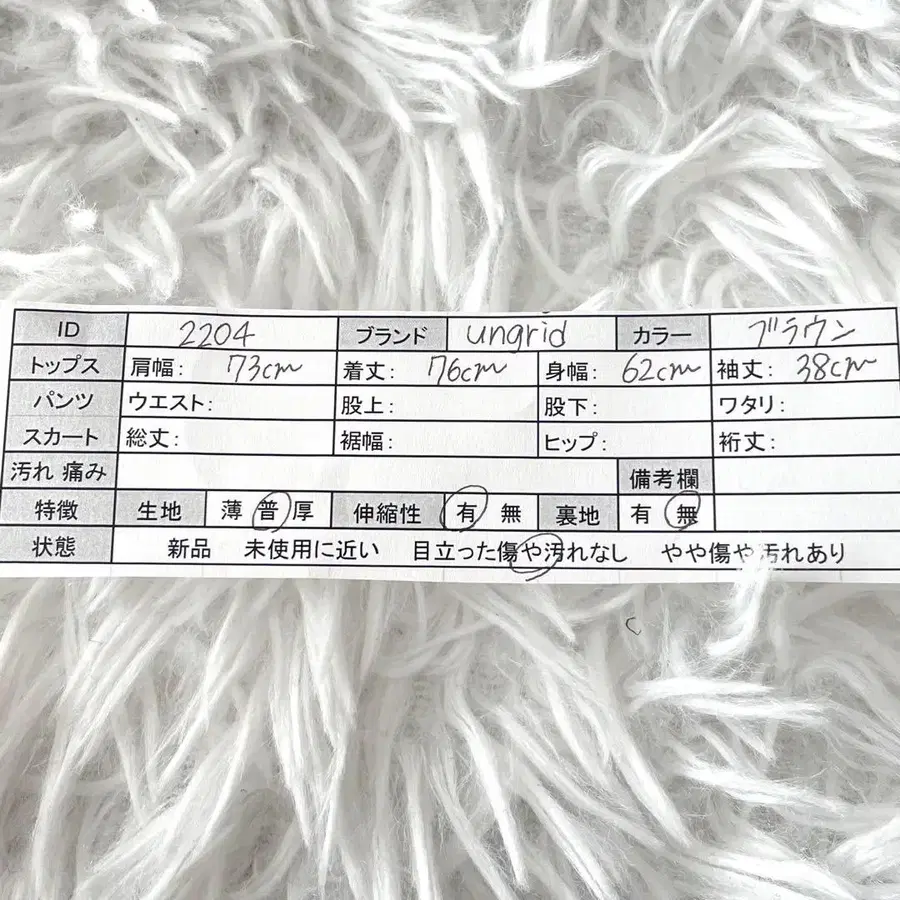 ID 2204 ブランド ungrid カラー ブラウン
トップス 肩幅: 73cm 着丈: 76cm 身幅: 62cm 袖丈: 38cm
パンツ ウエスト: 股上: 股下: ワタリ:
スカート 総丈: 裾幅: ヒップ: 裄丈:
汚れ 痛み 備考欄
特徴 生地 薄 普 厚 伸縮性 有 無 裏地 有 無
状態 新品 未使用に近い 目立った傷や汚れなし やや傷や汚れあり